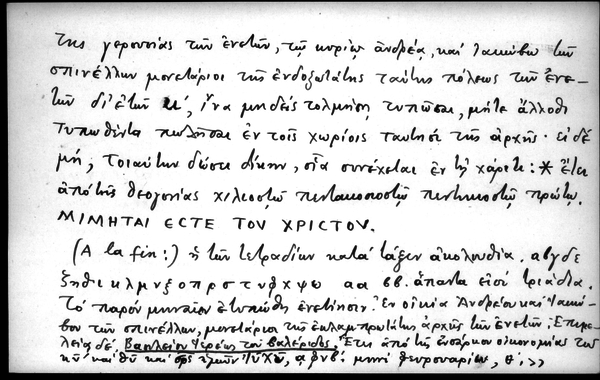 της γερουσίας τῶν ἐνετῶν, τῷ κυρίῳ ἀνδρέᾳ, καὶ Ἰακώβῳ τῶν
σπινέλλων μονετάριοι τῆς ἐνδοξοτάτης ταύτης πόλεως τῶν ἐνε-
τῶν δι' ἐτῶν κ', ἵνα μηδεὶς τολμήσῃ τυπῶσαι, μήτε ἄλλοθι
τυπωθέντα πωλῆσαι ἐν τοῖς χωρίοις ταυτησὶ τῆς ἀρχῆς· εἰ δὲ
μή, τοιαύτην δώσει δίκην, οἵα συνέχεται ἐν τῇ χάριτι: * ἔτει
ἀπὸ τῆς θεογονίας χιλιοστῷ πεντακοσιοστῷ πεντηκοστῷ πρώτῳ.
ΜΙΜΗΤΑΙ ΕCΤΕ ΤΟΥ ΧΡΙCΤΟΥ.
(A la fin:) ἡ τῶν τετραδίων κατὰ τάξιν ἀκολουθία. αβγδε
ζηθικλμνξοπρστυφχψω αα ββ. ἅπαντα εἰσὶ τριάδια.
Τὸ παρὸν μηναῖον ἐτυπώθη ἐνετίησιν. Ἐν οἰκίᾳ Ἀνδρέου καὶ Ἰακώ-
βου τῶν σπινέλλων, μονετάριοι τῆς ἐκλαμπροτάτης ἀρχῆς τῶν ἐνετῶν, Ἐπιμε-
λείᾳ δὲ, Βασιλείου ἱερέως τοῦ βαλέριδος, Ἔτει ἀπὸ τῆς ἐνσάρκου οἰκονομίας τοῦ
κυ καὶ θυ καὶ σρς ἡμῶν ΙΥ ΧΥ, αφνβ'. μηνὶ φευρουαρίῳ, θ'. >>